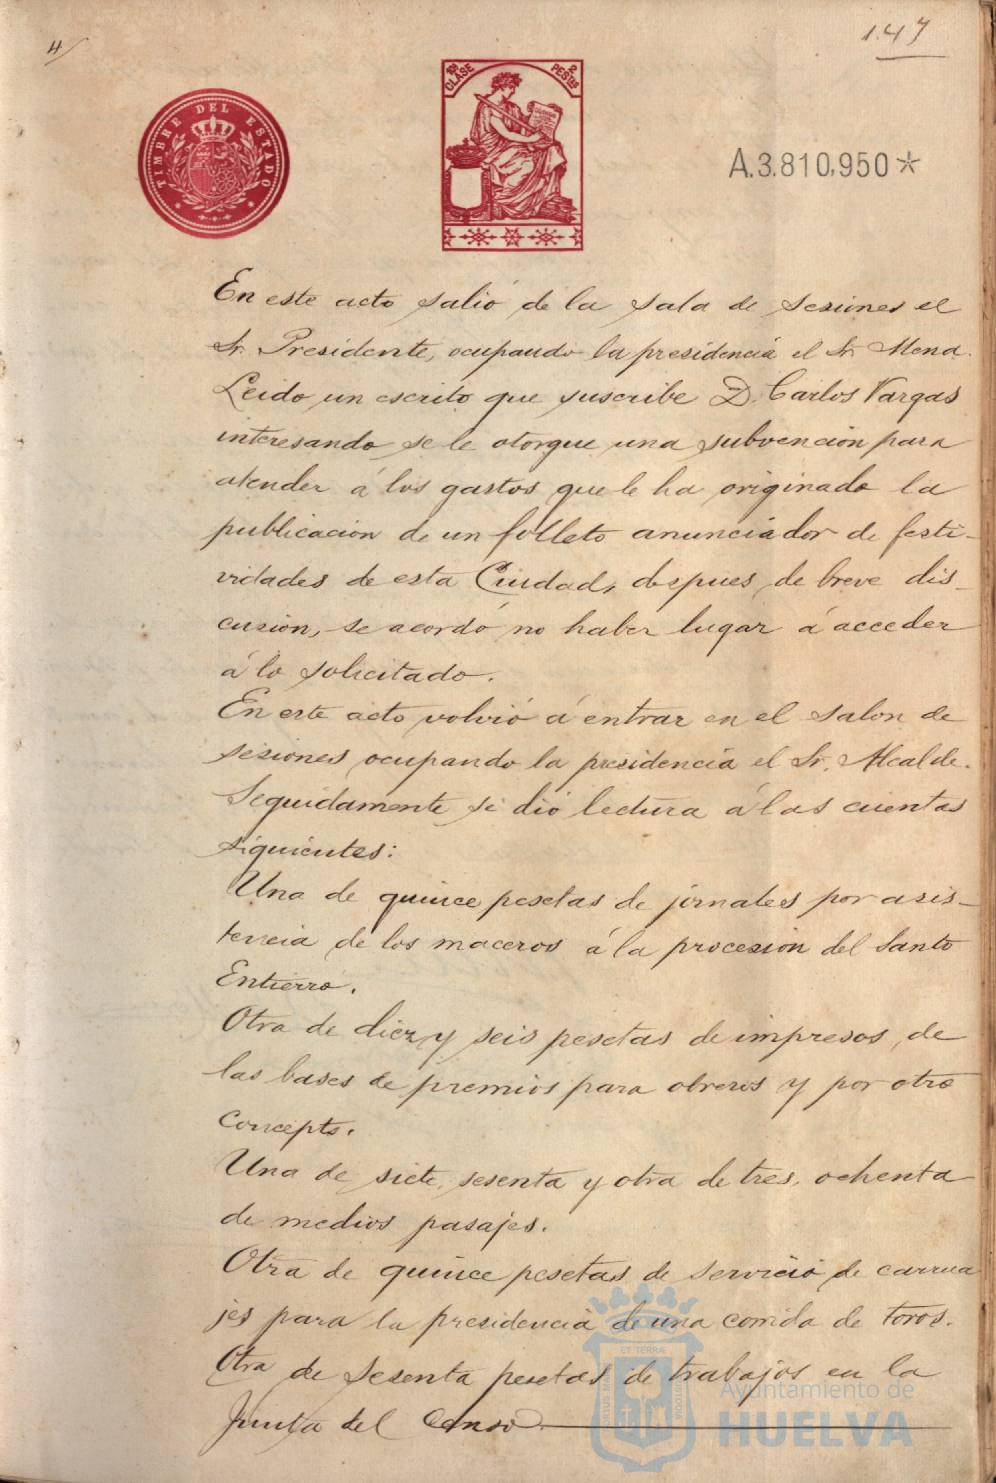 4/
147
TIMBRE DEL ESTADO
10ª CLASE
2 PESTAS
A.3.810,950*
En este acto salió de la sala de sesiones el
Sr. Presidente, ocupando la presidencia el Sr. Mena.
Leido un escrito que suscribe D. Carlos Vargas
interesando se le otorgue una subvención para
atender á los gastos que le ha originado la
publicacion de un folleto anunciador de festi-
vidades de esta Ciudad, despues de breve dis-
cusion, se acordó no haber lugar á acceder
á lo solicitado.
En este acto volvió á entrar en el salon de
sesiones ocupando la presidencia el Sr. Alcalde.
Seguidamente se dió lectura á las cuentas
siguientes:
Una de quince pesetas de jornales por asis-
tencia de los maceros á la procesion del Santo
Entierro.
Otra de diez y seis pesetas de impresos, de
las bases de premios para obreros y por otro
concepto.
Una de siete, sesenta y otra de tres, ochenta
de medios pasajes.
Otra de quince pesetas de servicio de carrua
jes para la presidencia de una corrida de toros.
Otra de sesenta pesetas de trabajos en la
Junta del Censo
ET TERRA
Ayuntamiento de
HUELVA